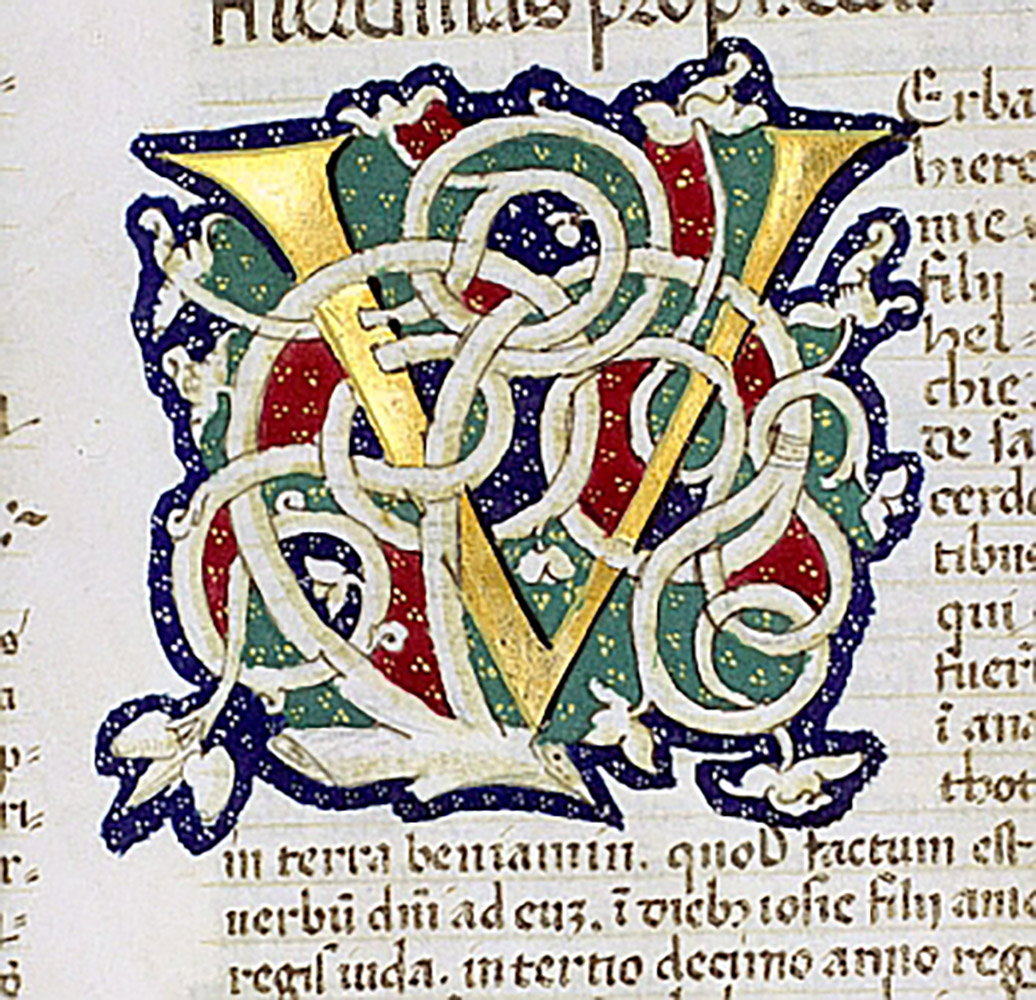 V
Erba
hiere
mie
filij
hel
chie
de sa
cerd
tibus
qui
fuer̄
ī ana
thot
in terra beniamin. quod factum est
uerbū dn̄i ad euꝫ. ī diebꝫ iosie filij amo
regis iuda. in tertio decimo anno regi